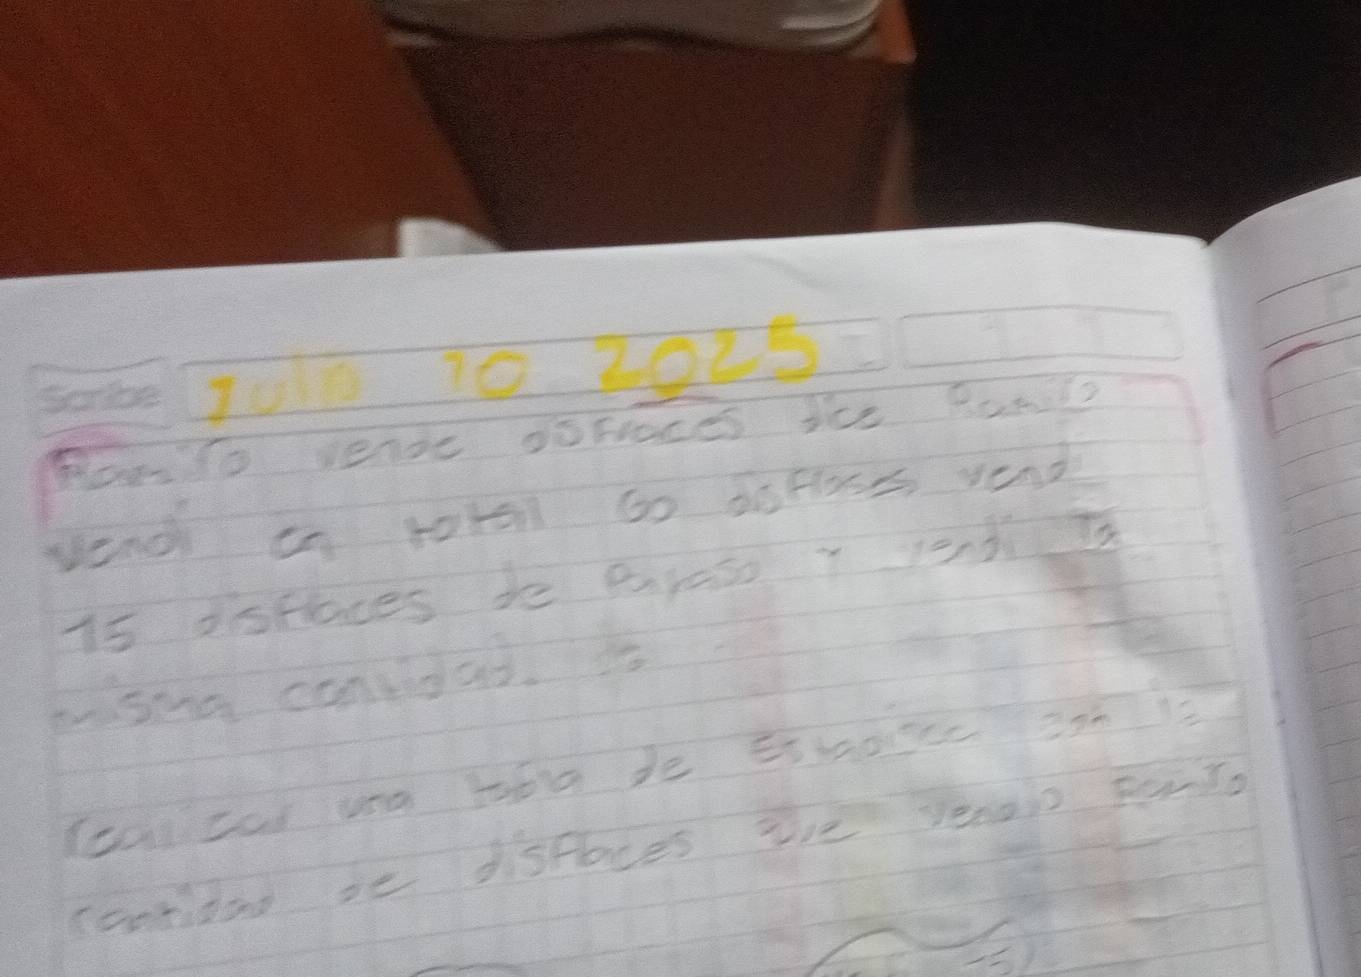 Scribe Julio 10 2025
Ramiro vende disfraces dice Ramiro
vendi en total 60 disfrases vendi
15 disfraces de Payaso y vendi la
misma cantidad.
realizar una tabla de con la
cantidad de disfraces que vendio Ramiro
15